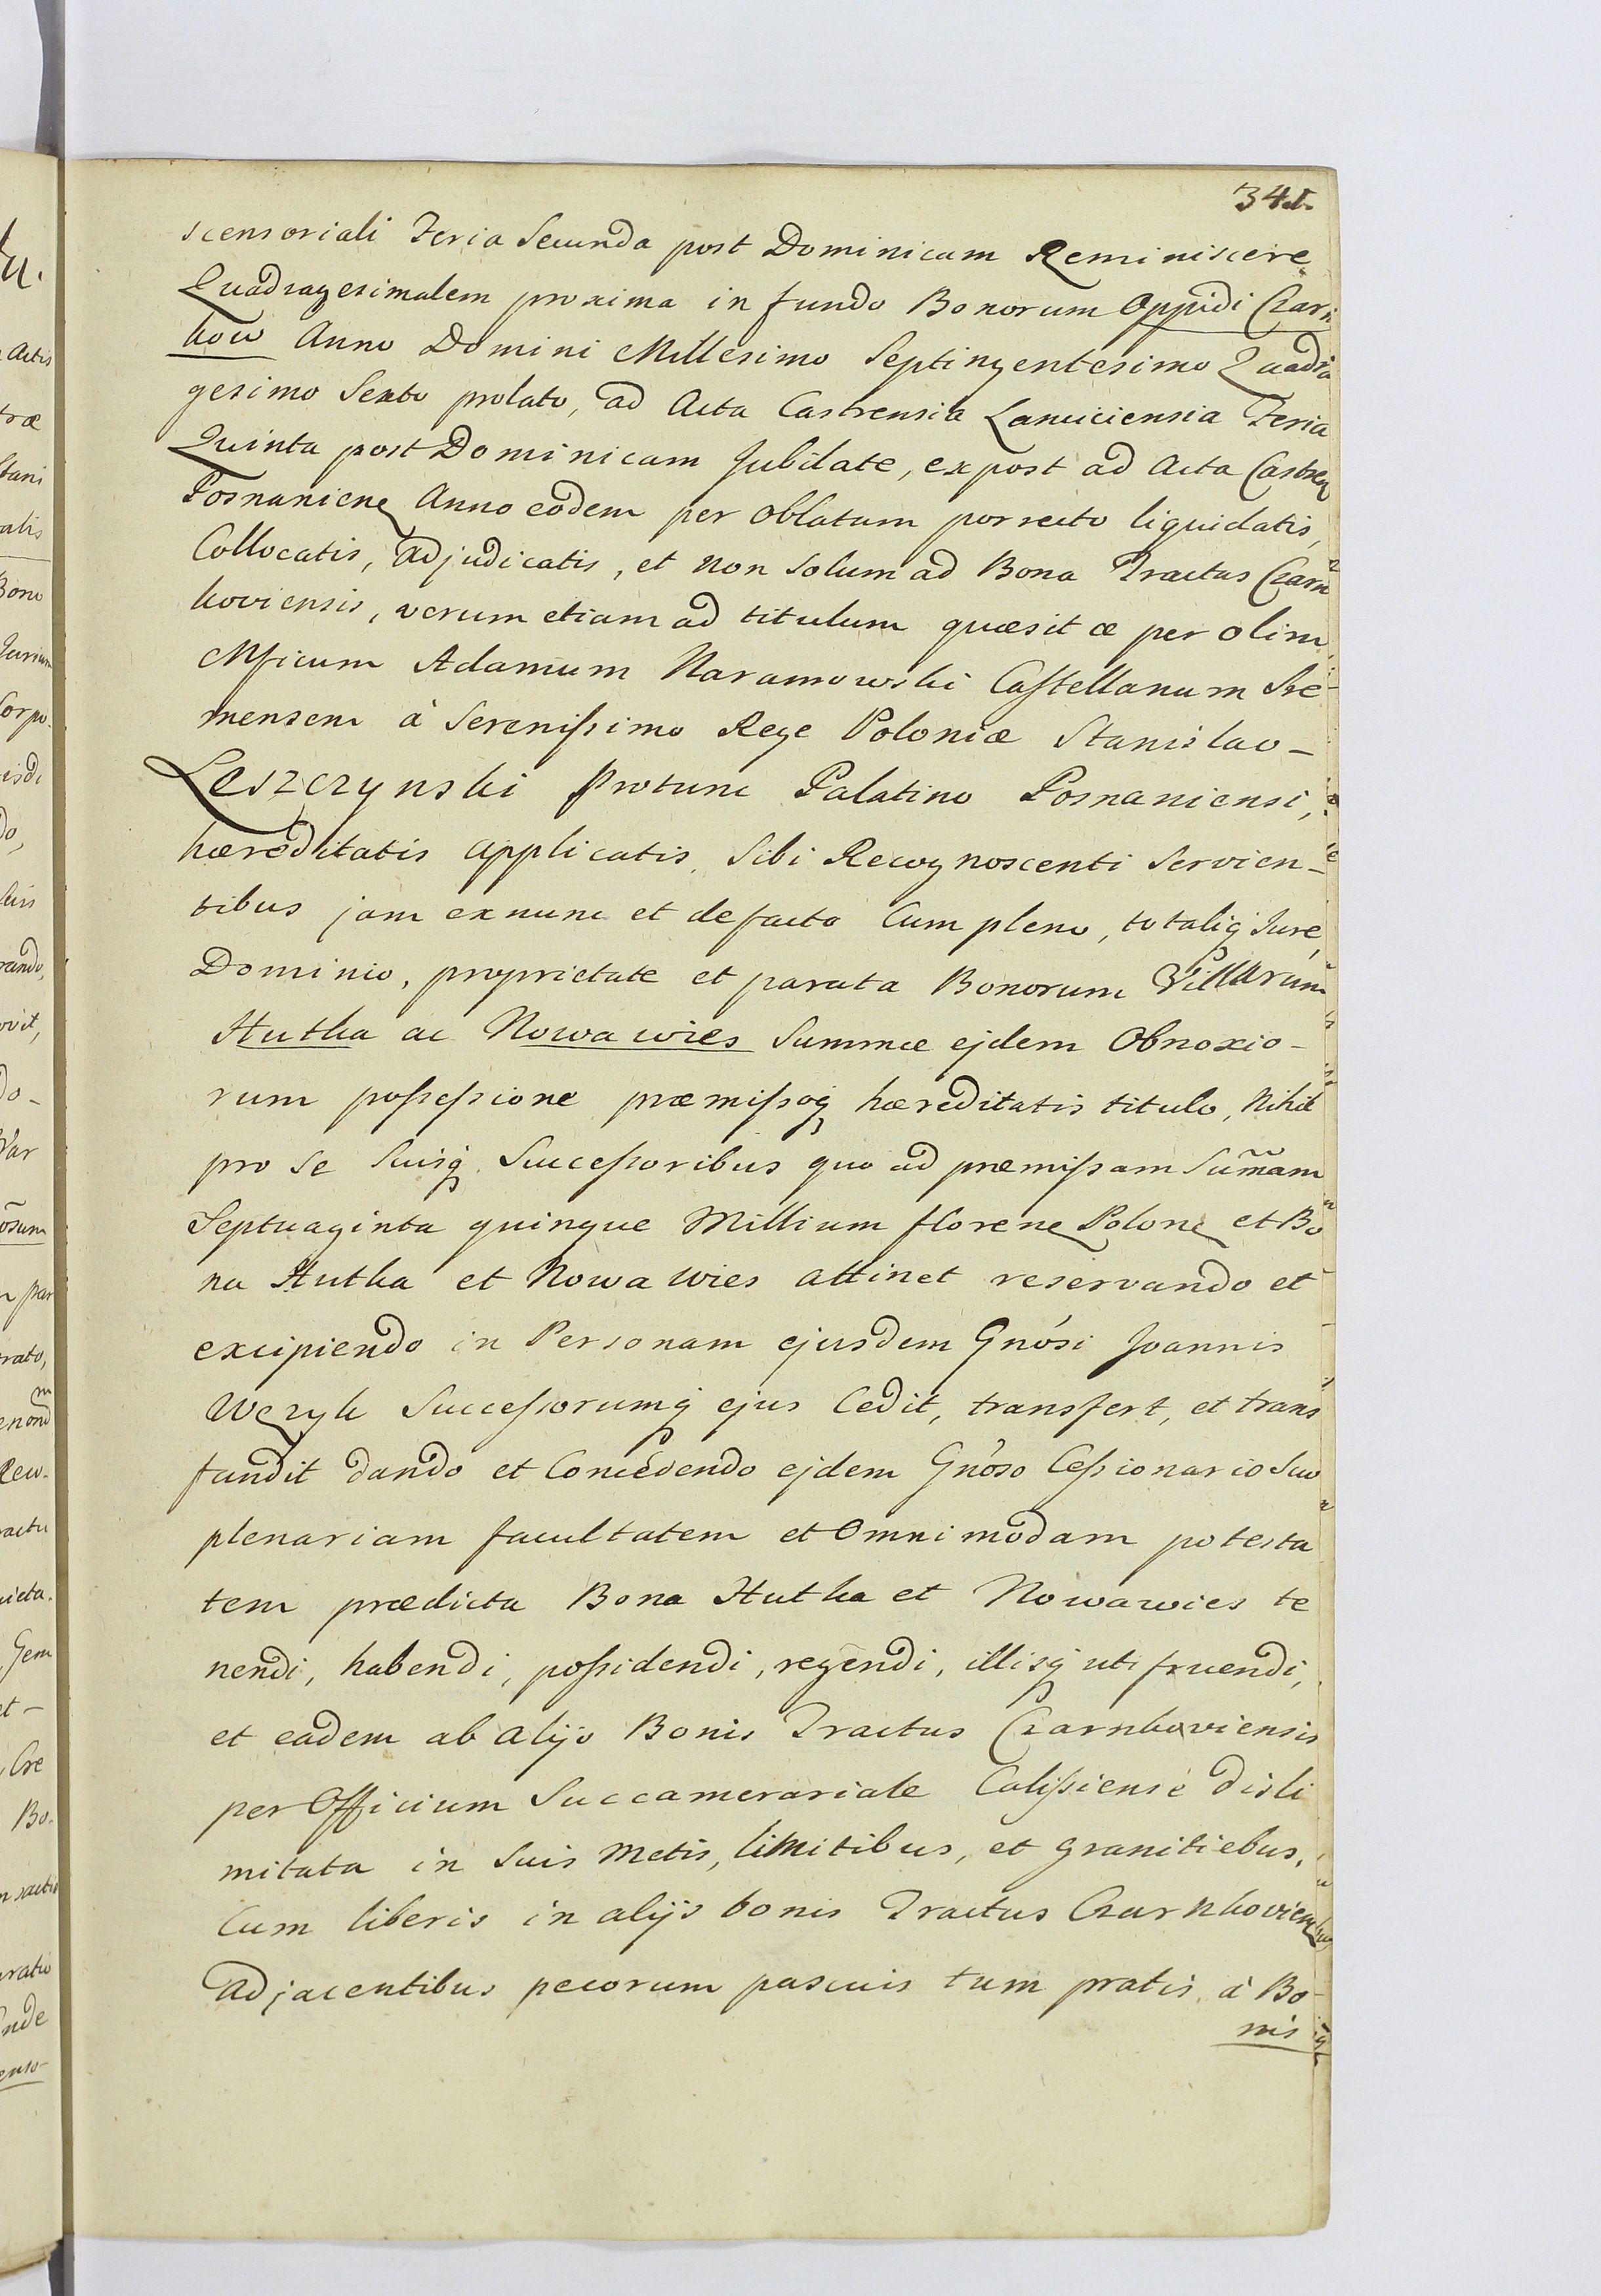 341.
scensoriali Feria Secunda post Dominicam Reminiscere
Quadragesimalem proxima in fundo Bonorum Oppidi Czarn
kow Anno Domini Millesimo Septingentesimo Quadra
gesimo Sexto prolato, ad Acta Castrensia Lanciciensia Feria
Quinta post Dominicam Jubilate, ex post ad Acta Castren
Posnanien Anno eodem per Oblatam porrecto liquidatis,
Collocatis, adjudicatis, et non Solum ad Bona Tractus Czarn
koviensis, verum etiam ad titulum quæsitæ per olim
Mficum Adamum Naramowski Castellanum Sre
mensem à Serenissimo Rege Poloniæ Stanislao –
Leszczynski protunc Palatino Posnaniensi,
hæreditatis applicatis, Sibi Recognoscenti Servien–
tibus jam exnunc et defacto Cum pleno, totaliq Jure,
Dominio, proprietate et parata Bonorum Villarum
Hutka ac Nowawies Summæ ejdem Obnoxio–
rum possessione præmissoq hæreditatis titulo, Nihil
pro Se Suisq Successoribus quo ad præmissam Sum̃am
Septuaginta quinque Millium floren Polon et Bo
na Hutka et Nowa Wies attinet reservando et
excipiendo in Personam ejusdem Gnósi Joannis
Węzyk Successorumq ejus Cedit, transfert, et trans
fundit dando et Concedendo ejdem Gnóso Cessionario Suo
plenariam facultatem et Omnimodam potesta
tem prædicta Bona Hutka et Nowawies te
nendi, habendi, possidendi, regendi, illisq uti fruendi,
et eadem ab alijs Bonis Tractus Czarnkoviensis
per Officium Succamerariale Calissiense disli
mitata in Suis Metis, limitibus, et granitiebus,
Cum liberis in alijs bonis Tractus Czarnkovien
adjacentibus pecorum pascuis tum pratis, à Bo
nis